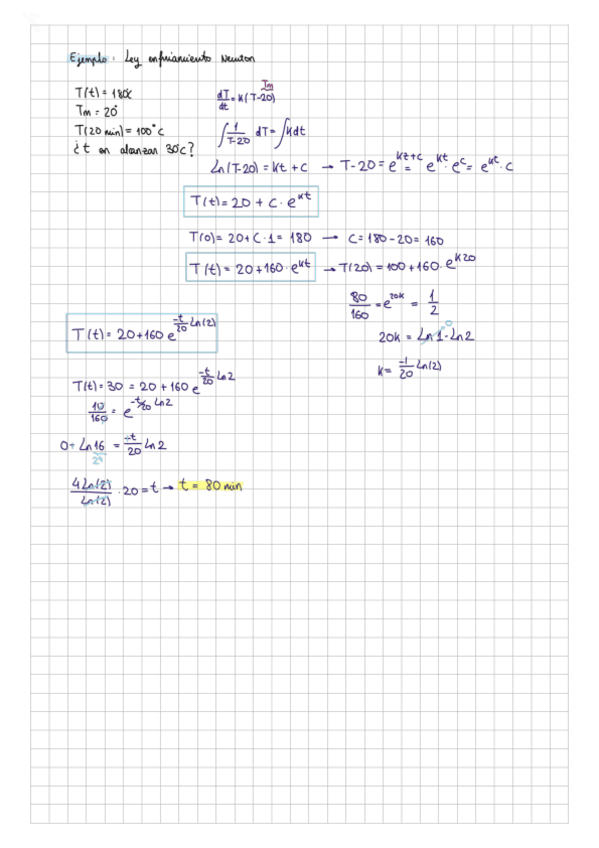 Ejemplo: Ley enfriamiento Newton
T(t) = 180°C
Tm = 20°
T(20 min) = 100°C
¿t en alcanzar 30°C?
Tm
dT/dt = K(T-20)
∫ 1/(T-20) dT = ∫ Kdt
Ln(T-20) = Kt + C → T-20 = e^(Kt+C) = e^(Kt) · e^C = e^(Kt) · C
T(t) = 20 + C · e^(Kt)
T(0) = 20 + C · 1 = 180 → C = 180 - 20 = 160
T(t) = 20 + 160 · e^(Kt) → T(20) = 100 + 160 · e^(K20)
80/160 = e^(20K) = 1/2
20K = Ln 1 - Ln 2
0
K = -1/20 Ln(2)
T(t) = 20 + 160 e^(-t/20 Ln(2))
T(t) = 30 = 20 + 160 e^(-t/20 Ln 2)
10/160 = e^(-t/20 Ln 2)
0 - Ln 16 = -t/20 Ln 2
2^4
4 Ln(2)/Ln(2) · 20 = t → t = 80 min